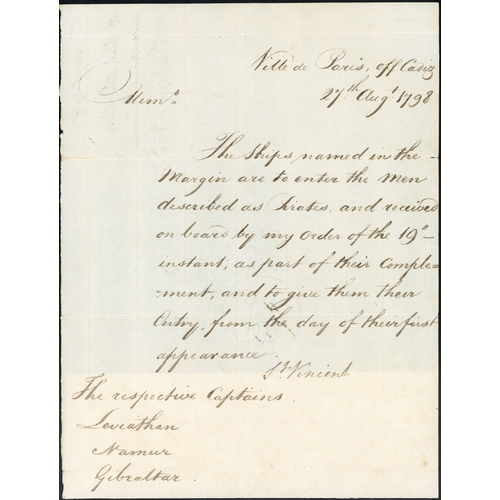 Ville de Paris, off Cadiz
27th Augt 1798
Memo
The Ships named in the
Margin are to enter the Men
described as Pirates, and received
on board by my Order of the 19th
instant, as part of their Comple=
=ment, and to give them their
Entry, from the day of their first
appearance.
St Vincent
The respective Captains
Leviathan
Namur
Gibraltar.